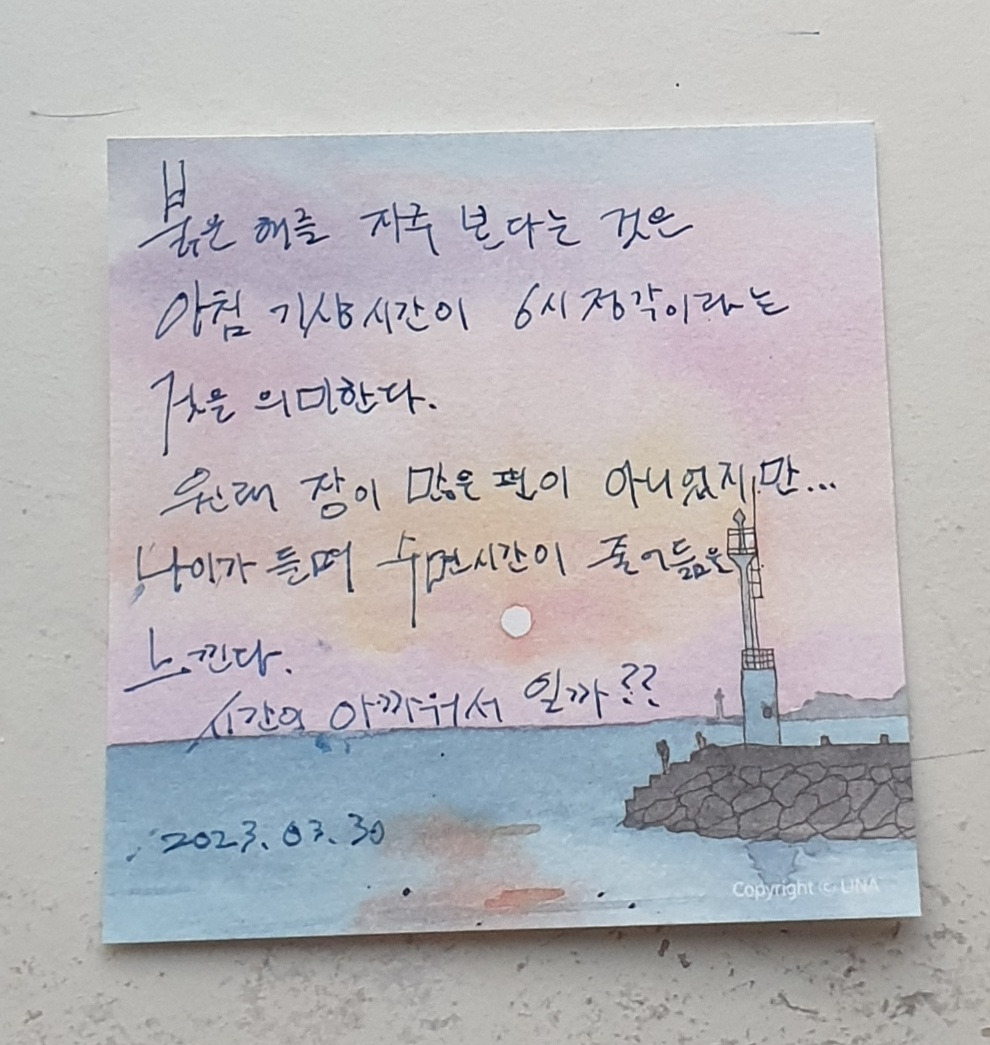 붉은 해를 자주 본다는 것은
아침 기상시간이 6시 정각이라는
것을 의미한다.
원래 잠이 많은 편이 아니었지만...
나이가 들며 수면시간이 줄어듦을
느낀다.
시간이 아까워서 일까??
2023.03.30
Copyright ⓒ LINA